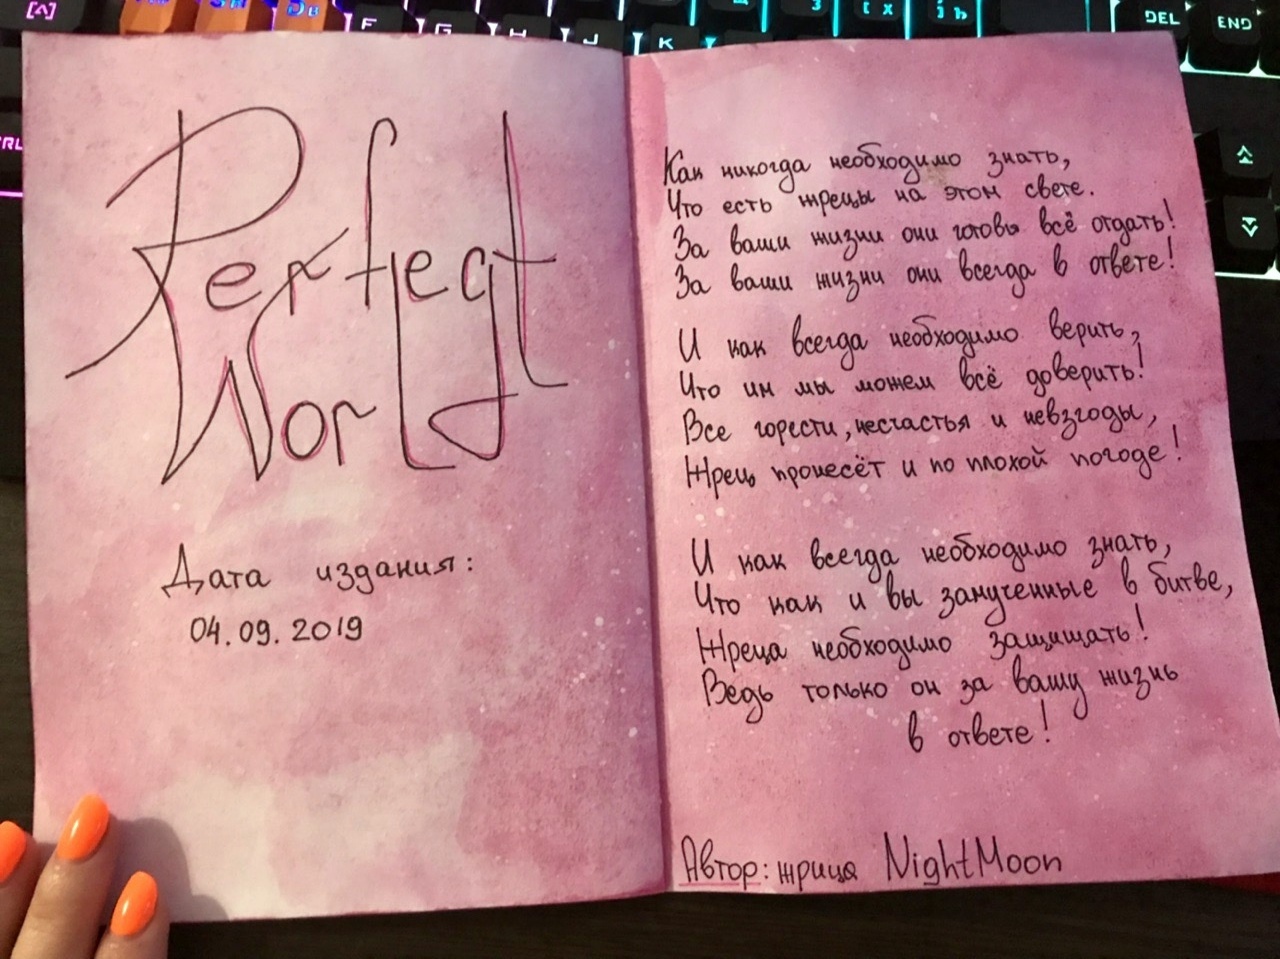 Perfect
World
Дата издания:
04.09.2019
Как никогда необходимо знать,
Что есть жрецы на этом свете.
За ваши жизни они готовы всё отдать!
За ваши жизни они всегда в ответе!
И как всегда необходимо верить,
Что им мы можем всё доверить!
Все горести, несчастья и невзгоды,
Жрец пронесёт и по плохой погоде!
И как всегда необходимо знать,
Что как и вы замученные в битве,
Жреца необходимо защищать!
Ведь только он за вашу жизнь
в ответе!
Автор: жрица NightMoon
DEL
END
F
G
H
J
K